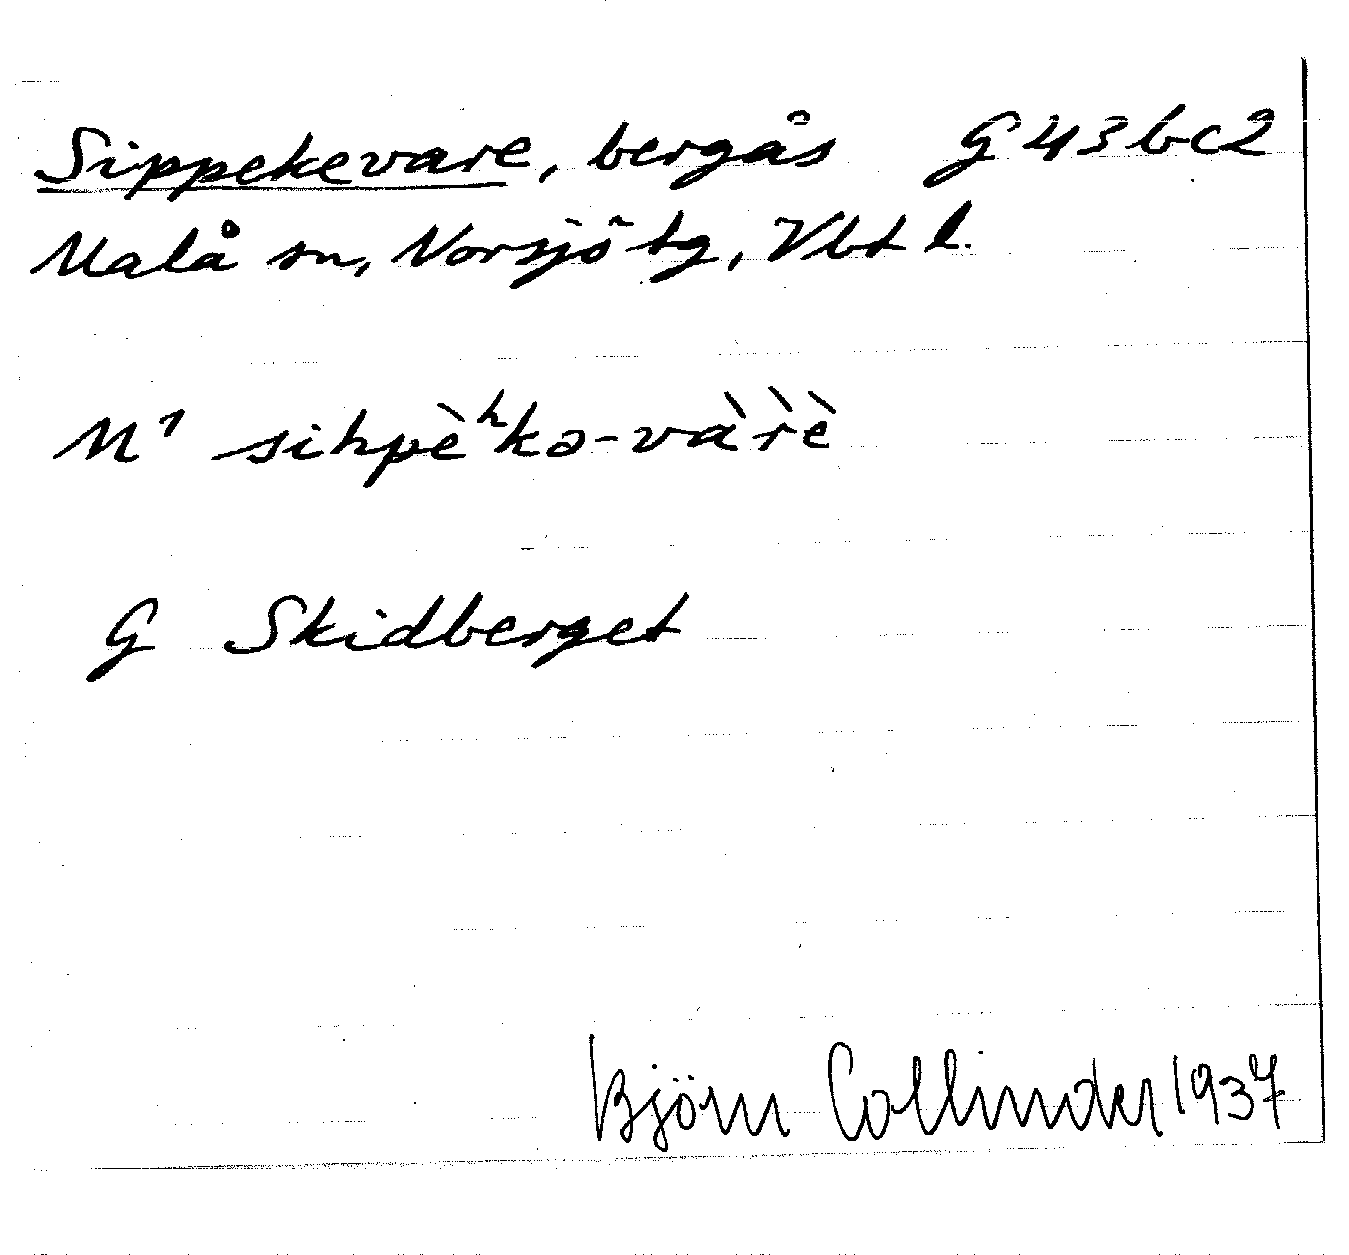 Sippekevare, bergås G43bc2
Malå sn, Norsjö tg, Vbt l.
M¹ sihpèʰkə-vàr̀è
G Skidberget
Björn Collinder 1937